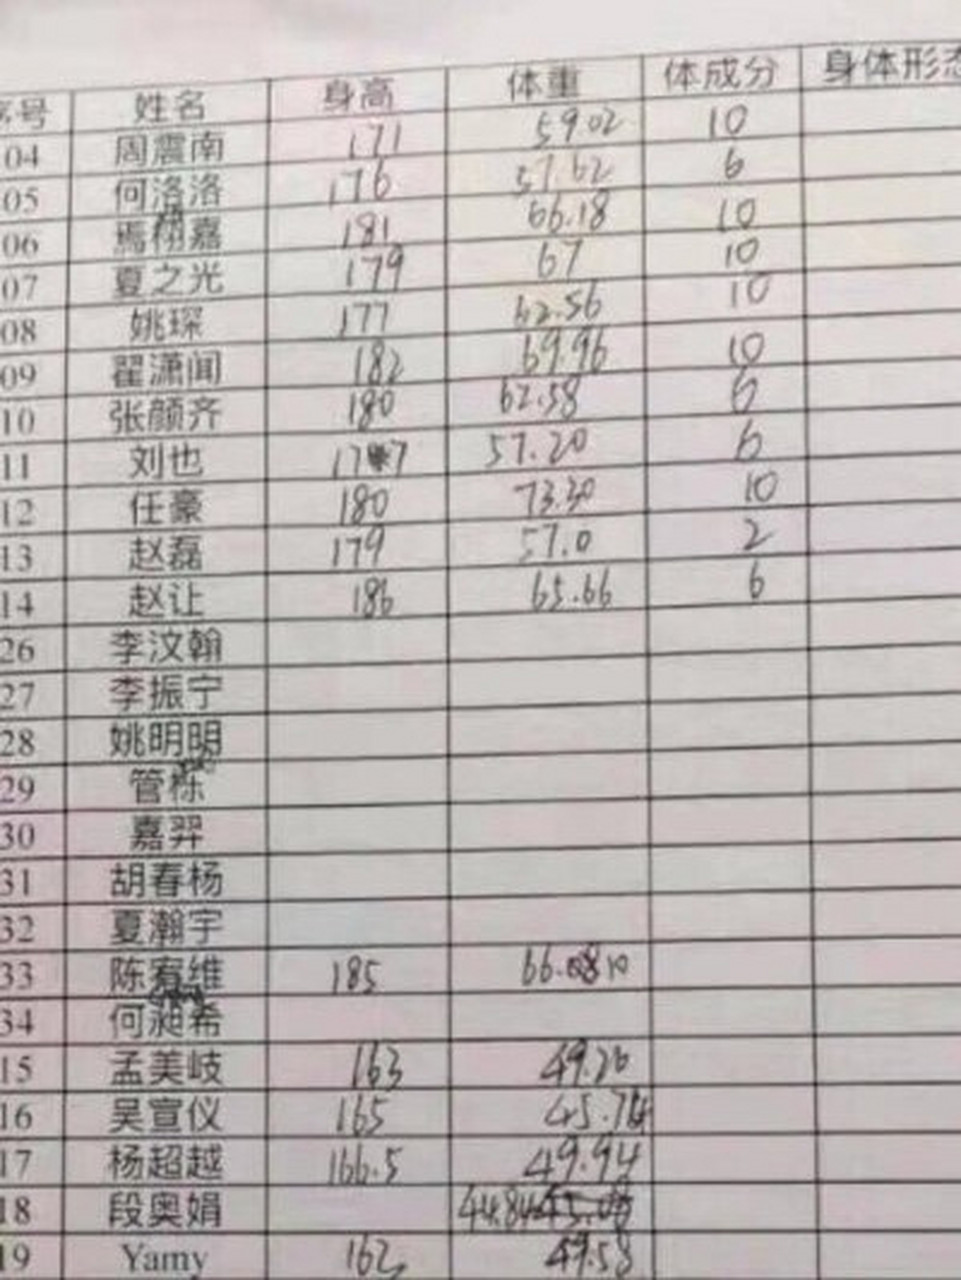 号 姓名 身高 体重 体成分 身体形态
04 周震南 171 59.02 10
05 何洛洛 176 57.62 6
06 焉栩嘉 181 66.18 10
07 夏之光 179 67 10
08 姚琛 177 62.56 10
09 翟潇闻 182 69.96 10
10 张颜齐 180 62.58 6
11 刘也 177 57.20 6
12 任豪 180 73.30 10
13 赵磊 179 57.0 2
14 赵让 186 65.66 6
26 李汶翰
27 李振宁
28 姚明明
29 管栎
30 嘉羿
31 胡春杨
32 夏瀚宇
33 陈宥维 185 66. 10
34 何昶希
15 孟美岐 163 49.26
16 吴宣仪 165 45.74
17 杨超越 166.5 49.94
18 段奥娟 44.84
19 Yamy 162 49.58